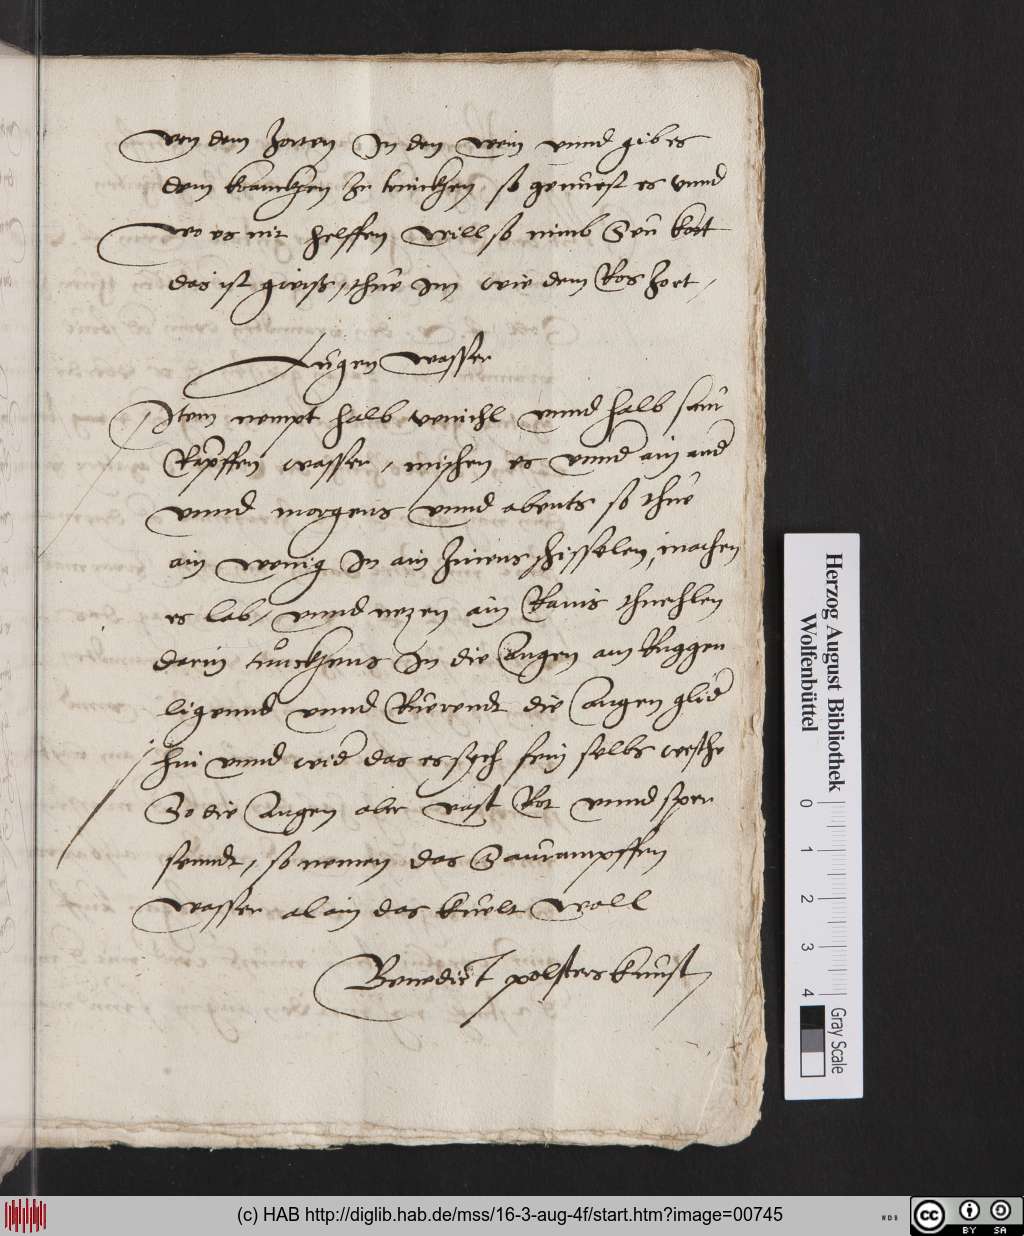 von dem Zotten In den wein vnnd gib es
dem kranckhen zu trinckhen, so geneust es vnnd
wo es nit helffen will so nimb Seu kott
das ist gwiss, thue im wie dem Ros Zott,
Augen wasser
Item nempt halb venichl vnnd halb saur
Rampffen wasser, mischen es vnnder ain ander
vnnd morgens vnnd abents so thue
ain wenig In ain Zinens schisselen, machen
es lab, vnnd nezen ain Rains thuechlen
darin truckhens In die Augen am Ruggen
ligennd vnnd Ruerendt die Augen glider
hin vnnd wider das es sych fein selbs wesche
So die Augen aber vast Rot vnnd sper
senndt, so nemen das Saurampffen
wasser alain das kuelt woll
Benedict polsters kunst
Herzog August Bibliothek
Wolfenbüttel
0 1 2 3 4
Gray Scale
(c) HAB http://diglib.hab.de/mss/16-3-aug-4f/start.htm?image=00745
WDB
cc BY SA